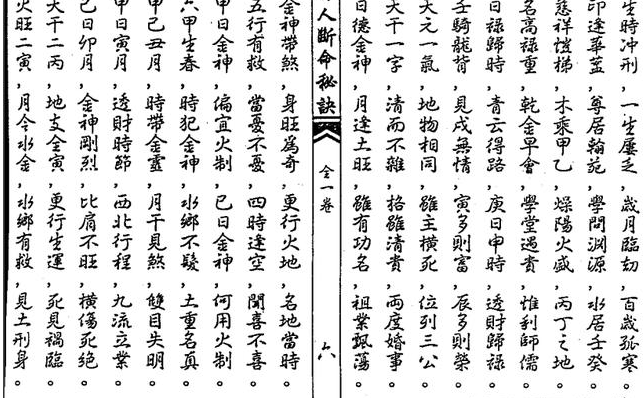 生時冲刑,一生屢乏,歲月臨劫,百歲孤寒。
印逢華蓋,尊居翰苑,學問渊源,水居壬癸。
慈祥愷悌,木乘甲乙,燥陽火盛,丙丁之地。
名高祿重,乾金早會,學堂遇貴,惟利師儒。
日祿歸時,青云得路,庚日申時,透財歸祿。
壬騎龍背,見戌無情,寅多則富,辰多則榮。
天元一氣,地物相同,雖主橫死,位列三公。
天干一字,清而不雜,格雖清貴,兩度婚事。
日德金神,月逢土旺,雖有功名,祖業飄蕩。
人斷命秘訣 全一卷 六
金神帶煞,身旺為奇,更行火地,名地當時。
五行有救,當憂不憂,四時逢空,聞喜不喜。
甲日金神,偏宜火制,己日金神,何用火制。
六甲生春,時犯金神,水鄉不發,土重名真。
甲己丑月,時帶金靈,月干見煞,雙目失明。
甲日寅月,透財時節,西北行程,九流立業。
己日卯月,金神剛烈,比肩不旺,橫傷死絕。
天干二丙,地支全寅,更行生運,死見禍臨。
火旺二寅,月令水金,水鄉有救,見土刑身。